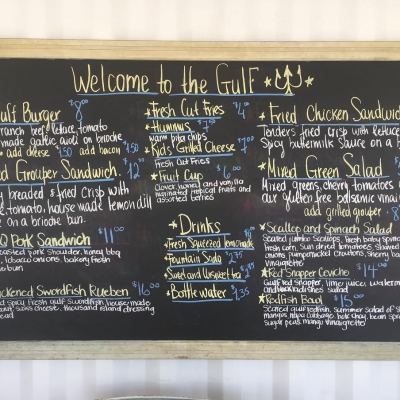 Welcome to the Gulf
ulf Burger $8.00
ranch beef, lettuce, tomato
made garlic aioli on brioche
add cheese $.50 add bacon $1.50
ed Grouper Sandwich $12.00
y breaded & fried crisp with
e, tomato, house made lemon dill
on a brioche bun.
Q Pork Sandwich $11.00
Roasted pork shoulder, honey bbq
, tobacco onions, bakery fresh
bun
ackened Swordfish Rueben $16.00
spicy fresh gulf swordfish, house-made
swiss cheese, thousand island dressing
ead
Fresh Cut Fries $4
Hummus $7.00
warm pita chips
Kid's Grilled Cheese $7.00
Fresh Cut Fries
Fruit Cup $6.00
Clover honey and vanilla
marinated tropical fruits and
assorted berries
Drinks
Fresh Squeezed lemonade
Fountain Soda $2.75
Sweet and Unsweet tea
Bottle water $2.35
Fried Chicken Sandwich
Tenders fried crisp with lettuce
Spicy buttermilk sauce on a b
Mixed Green Salad
Mixed greens, cherry tomatoes
our gluten free balsamic vinai
add grilled grouper $8
Scallop and Spinach Salad
Seared jumbo scallops, fresh baby spina
feta cheese, sun dried tomatoes, shaved
onions, pumpernickel croutons, Sherry ba
vinaigrette
Red Snapper Ceviche $14.00
Gulf red snapper, lime juice, waterm
and radishes salad
Redfish Bowl $15.00
Seared gulf redfish, summer salad of
mango, napa cabbage, bok choy, bean spr
sugar peas, mango vinaigrette